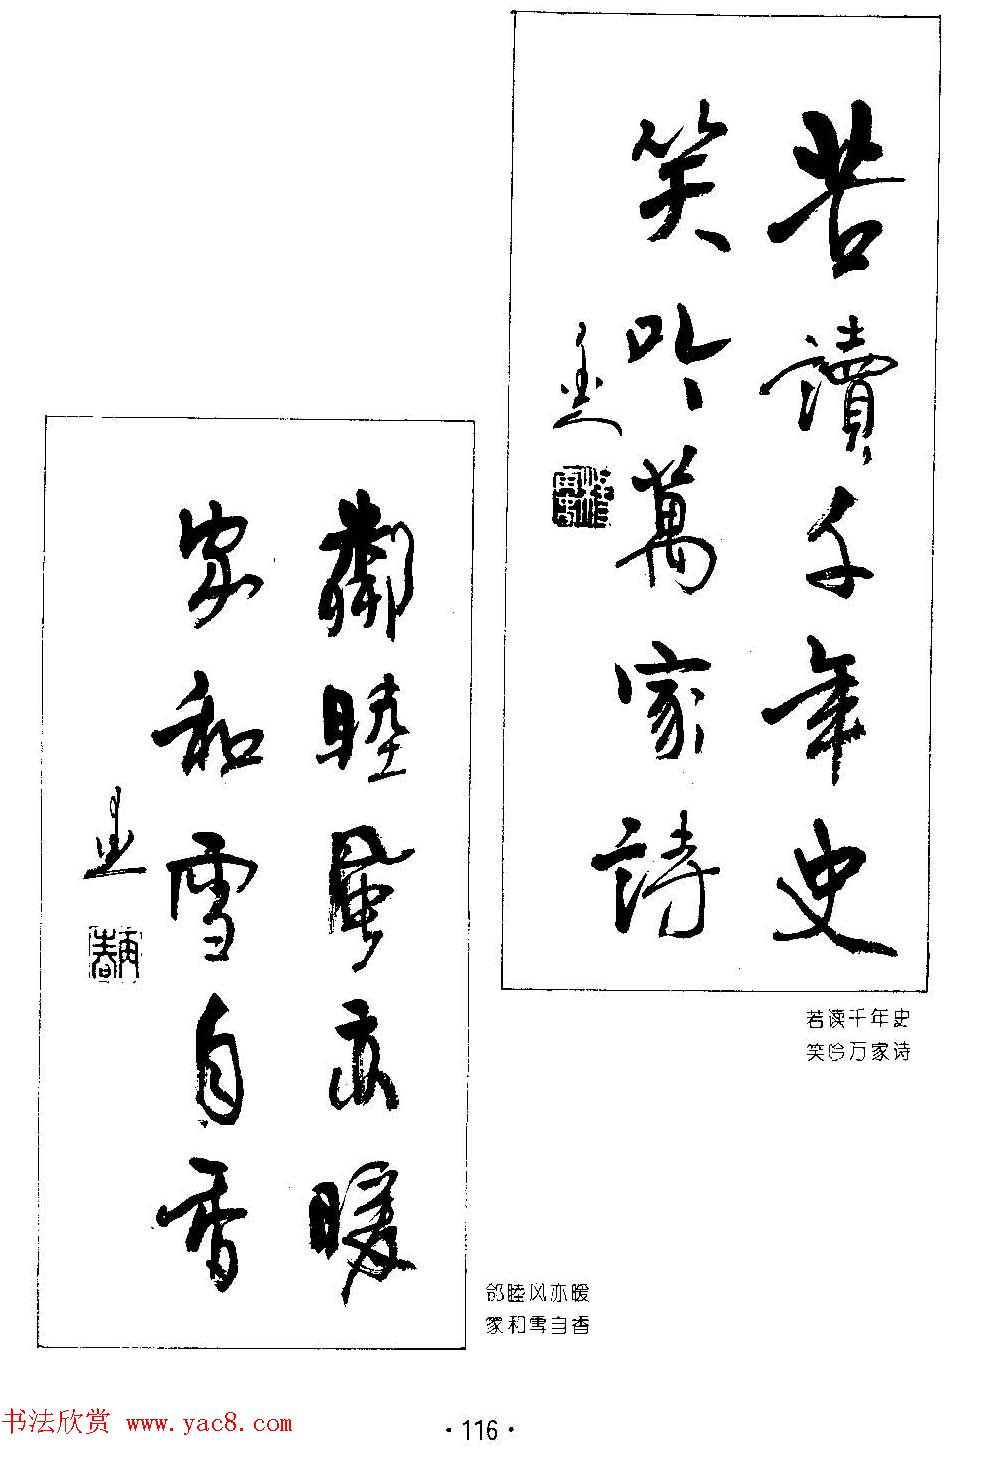 苦讀千年史
笑吟萬家詩
若读千年史
笑吟万家诗
鄰睦風亦暖
家和雪自香
邻睦风亦暖
家和雪自香
书法欣赏 www.yac8.com
·116·